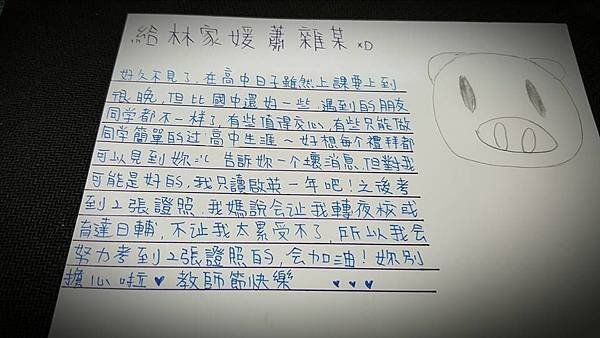 給林家媛蕭雜某 XD
好久不見了,在高中日子雖然上課要上到
很晚,但比國中還好一些,遇到的朋友
同学都不一樣了,有些值得交心,有些只能做
同学簡單的过高中生涯~好想每个禮拜都
可以見到妳 告訴妳一个壞消息,但對我
可能是好的,我只讀啟英一年吧!之後考
到2張證照,我媽說会让我轉夜校或
育達日輔,不让我太累受不了,所以我会
努力考到2張證照的,会加油!妳別
擔心啦♥教師節快樂 ♥♥♥